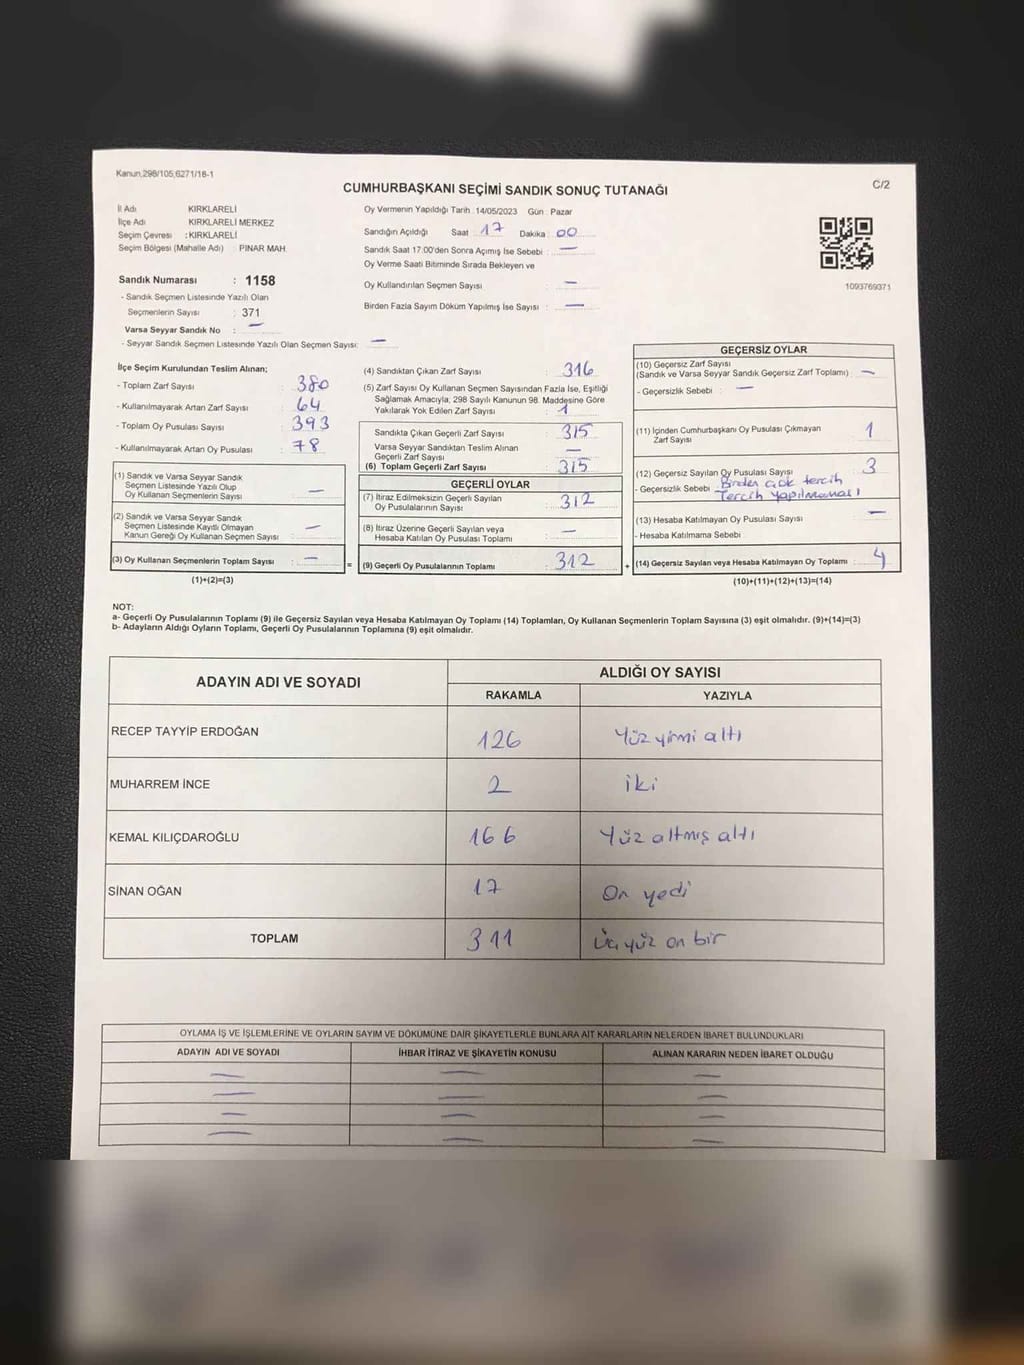 Kanun,298/105,6271/18-1
C/2
CUMHURBAŞKANI SEÇİMİ SANDIK SONUÇ TUTANAĞI
İl Adı KIRKLARELİ
İlçe Adı KIRKLARELİ MERKEZ
Seçim Çevresi : KIRKLARELİ
Seçim Bölgesi (Mahalle Adı) : PINAR MAH.
Sandık Numarası : 1158
- Sandık Seçmen Listesinde Yazılı Olan
Seçmenlerin Sayısı : 371
Varsa Seyyar Sandık No : —
- Seyyar Sandık Seçmen Listesinde Yazılı Olan Seçmen Sayısı: —
Oy Vermenin Yapıldığı Tarih : 14/05/2023 Gün : Pazar
Sandığın Açıldığı Saat 17 Dakika : 00
Sandık Saat 17:00'den Sonra Açılmış İse Sebebi : —
Oy Verme Saati Bitiminde Sırada Bekleyen ve
Oy Kullandırılan Seçmen Sayısı : —
Birden Fazla Sayım Döküm Yapılmış İse Sayısı : —
1093769371
İlçe Seçim Kurulundan Teslim Alınan;
- Toplam Zarf Sayısı : 380
- Kullanılmayarak Artan Zarf Sayısı : 64
- Toplam Oy Pusulası Sayısı : 393
- Kullanılmayarak Artan Oy Pusulası : 78
(1) Sandık ve Varsa Seyyar Sandık
Seçmen Listesinde Yazılı Olup
Oy Kullanan Seçmenlerin Sayısı : —
(2) Sandık ve Varsa Seyyar Sandık
Seçmen Listesinde Kayıtlı Olmayan
Kanun Gereği Oy Kullanan Seçmen Sayısı : —
(3) Oy Kullanan Seçmenlerin Toplam Sayısı : —
(1)+(2)=(3)
=
(4) Sandıktan Çıkan Zarf Sayısı : 316
(5) Zarf Sayısı Oy Kullanan Seçmen Sayısından Fazla İse, Eşitliği
Sağlamak Amacıyla; 298 Sayılı Kanunun 98. Maddesine Göre
Yakılarak Yok Edilen Zarf Sayısı : 1
Sandıkta Çıkan Geçerli Zarf Sayısı : 315
Varsa Seyyar Sandıktan Teslim Alınan
Geçerli Zarf Sayısı : —
(6) Toplam Geçerli Zarf Sayısı : 315
GEÇERLİ OYLAR
(7) İtiraz Edilmeksizin Geçerli Sayılan
Oy Pusulalarının Sayısı : 312
(8) İtiraz Üzerine Geçerli Sayılan veya
Hesaba Katılan Oy Pusulası Toplamı : —
(9) Geçerli Oy Pusulalarının Toplamı : 312
+
GEÇERSİZ OYLAR
(10) Geçersiz Zarf Sayısı
(Sandık ve Varsa Seyyar Sandık Geçersiz Zarf Toplamı) : —
- Geçersizlik Sebebi : —
(11) İçinden Cumhurbaşkanı Oy Pusulası Çıkmayan
Zarf Sayısı 1
(12) Geçersiz Sayılan Oy Pusulası Sayısı 3
- Geçersizlik Sebebi : Birden çok tercih
Tercih yapılmaması
(13) Hesaba Katılmayan Oy Pusulası Sayısı —
- Hesaba Katılmama Sebebi
(14) Geçersiz Sayılan veya Hesaba Katılmayan Oy Toplamı : 4
(10)+(11)+(12)+(13)=(14)
NOT:
a- Geçerli Oy Pusulalarının Toplamı (9) ile Geçersiz Sayılan veya Hesaba Katılmayan Oy Toplamı (14) Toplamları, Oy Kullanan Seçmenlerin Toplam Sayısına (3) eşit olmalıdır. (9)+(14)=(3)
b- Adayların Aldığı Oyların Toplamı, Geçerli Oy Pusulalarının Toplamına (9) eşit olmalıdır.
ADAYIN ADI VE SOYADI ALDIĞI OY SAYISI
RAKAMLA YAZIYLA
RECEP TAYYİP ERDOĞAN 126 Yüz yirmi altı
MUHARREM İNCE 2 iki
KEMAL KILIÇDAROĞLU 166 Yüz altmış altı
SİNAN OĞAN 17 On yedi
TOPLAM 311 Üç yüz on bir
OYLAMA İŞ VE İŞLEMLERİNE VE OYLARIN SAYIM VE DÖKÜMÜNE DAİR ŞİKAYETLERLE BUNLARA AİT KARARLARIN NELERDEN İBARET BULUNDUKLARI
ADAYIN ADI VE SOYADI İHBAR İTİRAZ VE ŞİKAYETİN KONUSU ALINAN KARARIN NEDEN İBARET OLDUĞU
— — —
— — —
— — —
— — —